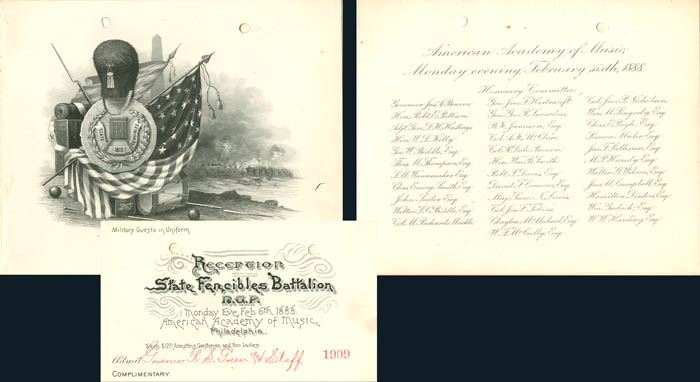 STATE FENCIBLES
1813
American Academy of Music,
Monday evening, February sixth, 1888.
Honorary Committee,
Governor Jas. A. Beaver
Hon. Robt. E. Pattison
Adjt. Gen. D. H. Hastings
Hon. W. D. Kelly
Geo. W. Biddle, Esq.
Thos. M. Thompson, Esq.
Chas. Emory Smith, Esq.
John
Walter
Col. M. Richards Muckle
Gen. Jno. F. Hartranft
Gen. Geo. R. Snowden
B. K. Jamison, Esq.
Col. A. K. Mc Clure
Col. R. Dale Benson
Hon. Wm. B. Smith
Robt. S. Davis, Esq.
Daniel F. Esq.
Maj. James
Col. Jno. P.
Clayton Mc Michael, Esq.
W. R. Mc Cully, Esq.
Col. Jno. P. Nicholson
Wm. M. Singerly, Esq.
Chas. E. Pugh, Esq.
Simon Muhr, Esq.
Jas. F. Sullivan, Esq.
M. P. Handy, Esq.
Walter G. Wilson, Esq.
Jno. M. Campbell, Esq.
Hamilton Disston, Esq.
Wm. Gerlach, Esq.
W. W. Harding, Esq.
Military Guests in Uniform
Reception
State Fencibles Battalion
N.G.P.
Monday Eve, Feb. 6th 1888.
American Academy of Music,
Philadelphia.
Tickets $5.00 Admitting Gentleman and two Ladies.
Admit Governor R. S. Green & Staff 1909
COMPLIMENTARY.